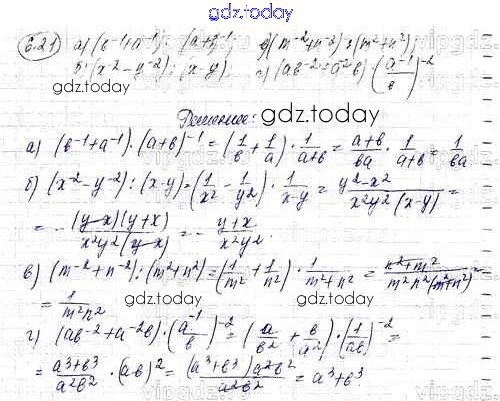 gdz.today
6.21 а) (b⁻¹+a⁻¹)·(a+b)⁻¹; в) (m⁻²+n⁻²):(m²+n²);
б) (x⁻²-y⁻²):(x-y); г) (ab⁻²+a⁻²b)·(a⁻¹/b)⁻²
gdz.today
Решение: gdz.today
а) (b⁻¹+a⁻¹)·(a+b)⁻¹ = (1/b + 1/a)·1/(a+b) = (a+b)/ba · 1/(a+b) = 1/ba
б) (x⁻²-y⁻²):(x-y) = (1/x² - 1/y²)·1/(x-y) = (y²-x²)/(x²y²(x-y)) =
= -(y-x)(y+x)/(x²y²(y-x)) = -(y+x)/(x²y²).
gdz.today
в) (m⁻²+n⁻²):(m²+n²) = (1/m² + 1/n²)·1/(m²+n²) = (n²+m²)/(m²n²(m²+n²)) =
= 1/(m²n²)
gdz.today
gdz.today
г) (ab⁻²+a⁻²b)·(a⁻¹/b)⁻² = (a/b² + b/a²)·(1/ab)⁻² =
= (a³+b³)/(a²b²)·(ab)² = (a³+b³)a²b²/(a²b²) = a³+b³
gdz.today